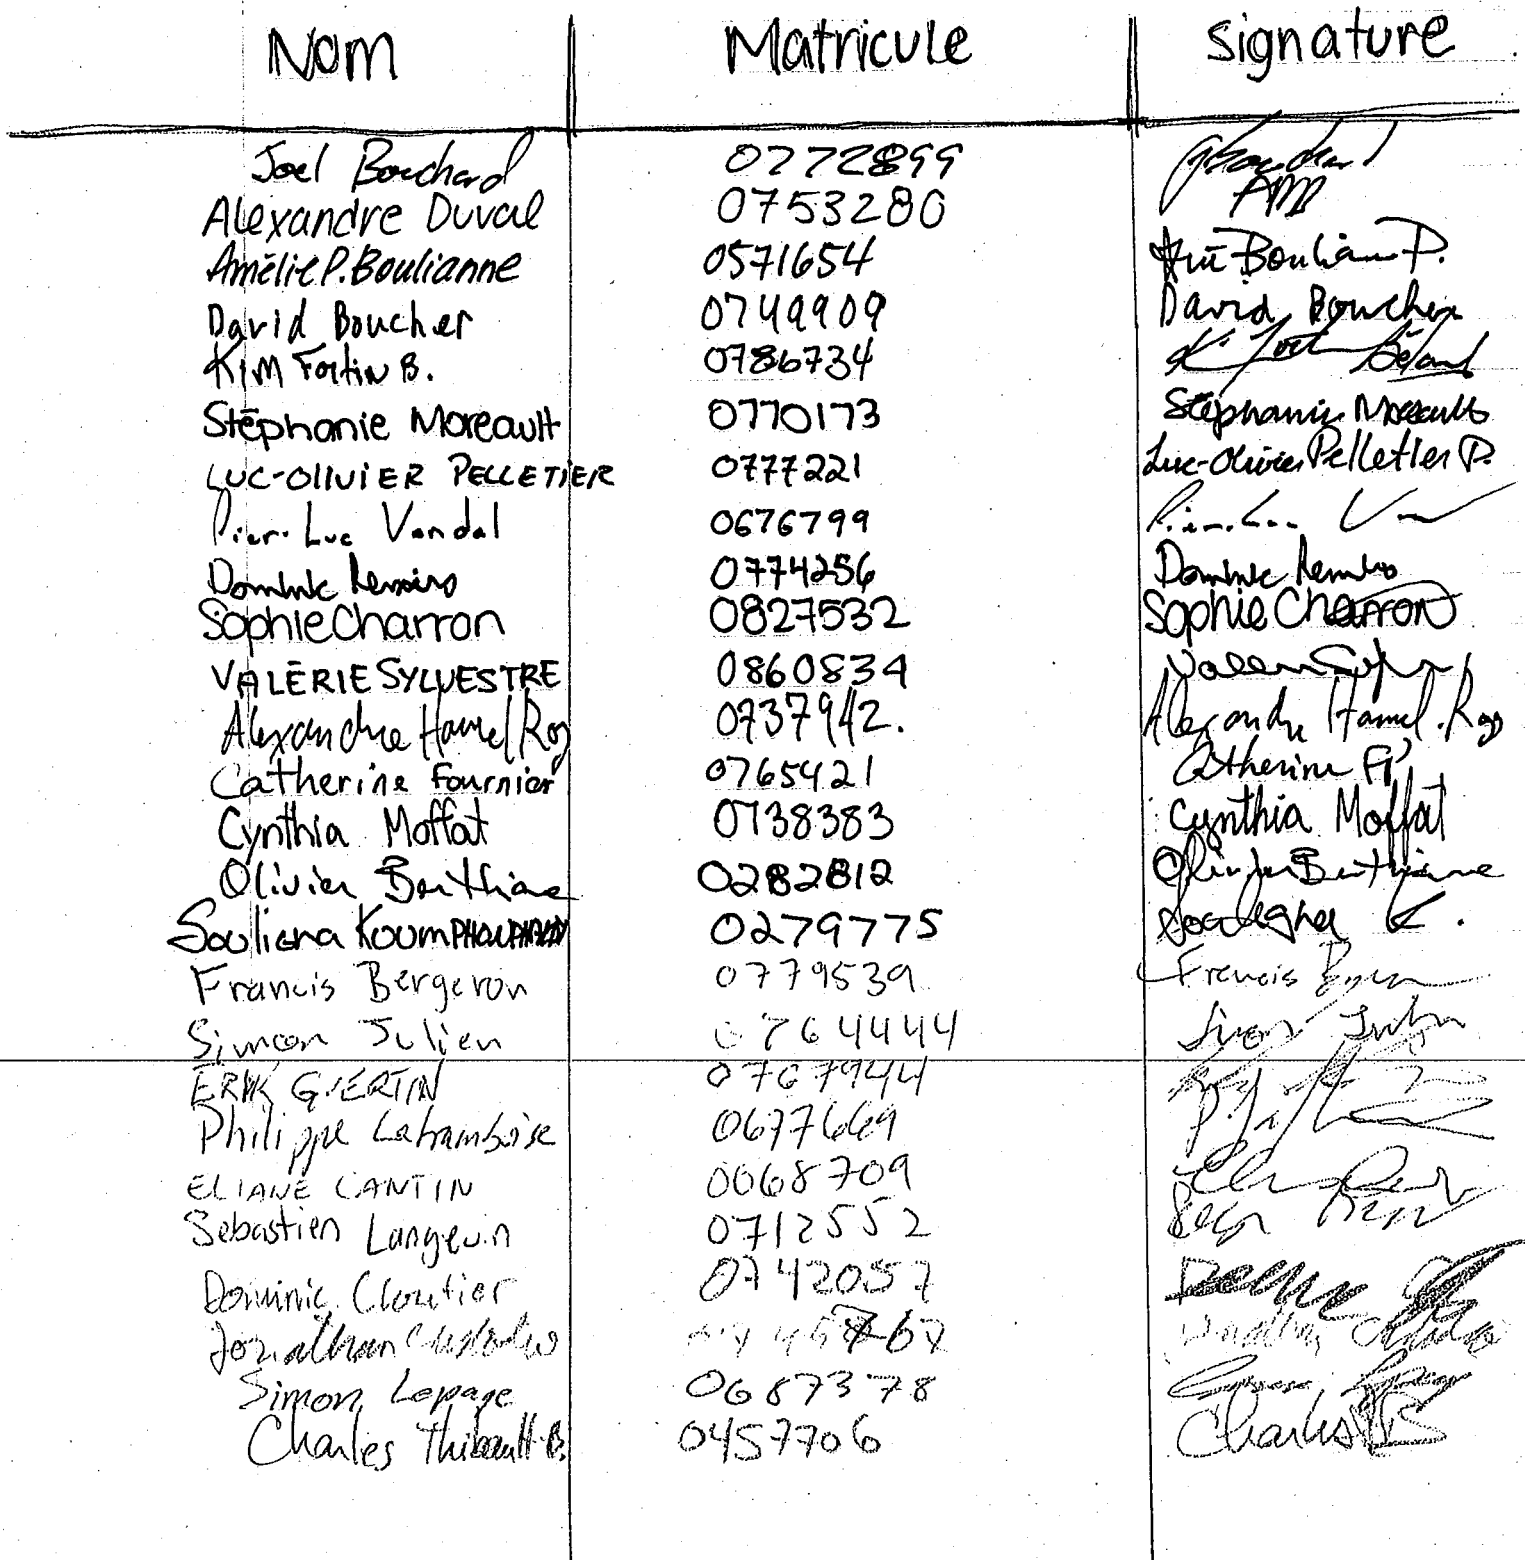 Nom Matricule Signature
Joel Bouchard 0772899 JBouchard
Alexandre Duval 0753280
Amélie P. Boulianne 0571654 Boulianne P.
David Boucher 0749909 David Boucher
Kim Fortin B. 0786734 K. Fortin Béland
Stéphanie Moreault 0770173 Stéphanie Moreault
LUC-OLIVIER PELLETIER 0777221 Luc-Olivier Pelletier P.
Pier-Luc Vandal 0676799
Dominic 0774256 Dominic
Sophie Charron 0827532 Sophie Charron
VALÉRIE SYLVESTRE 0860834
Alexandre Hamel Roy 0737942. Alexandre Hamel-Roy
Catherine Fournier 0765421 Catherine
Cynthia Moffat 0738383 Cynthia Moffat
Olivier Berthiaume 0282812 Olivier Berthiaume
Souliena 0279775 K.
Francis Bergeron 0779539 Francis
Simon Julien 0764444 Simon Julien
ERIK GUERTIN 0767944
Philippe Laframboise 0677669
ELIANE CANTIN 0068709
Sebastien Langevin 0712552
Dominic Cloutier 0742057
Jonathan
Simon Lepage 0687378
Charles Thibault-B. 0457706 Charles